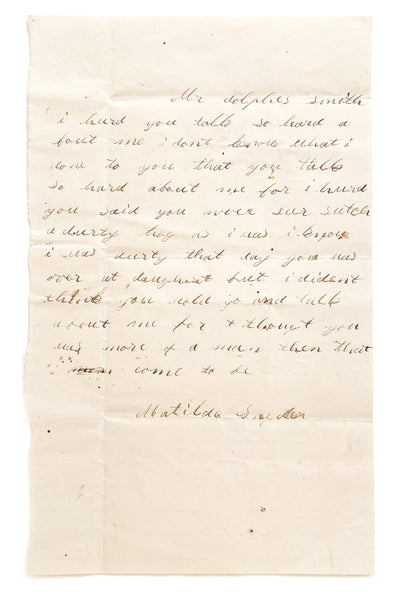 Mr dolphes smith
i hurd you talk so hard a
bout me i dont know what i
done to you that you talk
so hard about me for i hurd
you said you never see sutch
a durty hog as i was i know
i was durty that day you was
over at but i dident
think you wold go and talk
about me for I thought you
was more of a man then that
come to be
Matilda